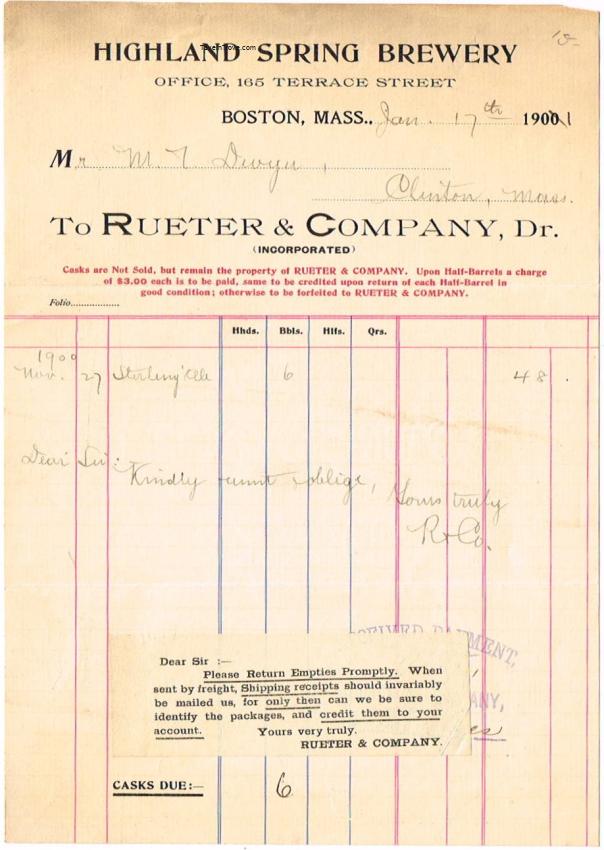 TavernTrove.com
HIGHLAND SPRING BREWERY
OFFICE, 165 TERRACE STREET
BOSTON, MASS., Jan. 17th 1901
Mr M. T Dwyer,
Clinton, Mass.
TO RUETER & COMPANY, Dr.
(INCORPORATED)
Casks are Not Sold, but remain the property of RUETER & COMPANY. Upon Half-Barrels a charge
of $3.00 each is to be paid, same to be credited upon return of each Half-Barrel in
good condition; otherwise to be forfeited to RUETER & COMPANY.
Folio
Hhds. Bbls. Hlfs. Qrs.
1900
Nov. 27 Sterling Ale 6 48.
Dear Sir:
Kindly remit & oblige,
Yours truly
R & Co.
RECEIVED PAYMENT,
Dear Sir :—
Please Return Empties Promptly. When
sent by freight, Shipping receipts should invariably
be mailed us, for only then can we be sure to
identify the packages, and credit them to your
account. Yours very truly.
RUETER & COMPANY.
ANY,
CASKS DUE:— 6